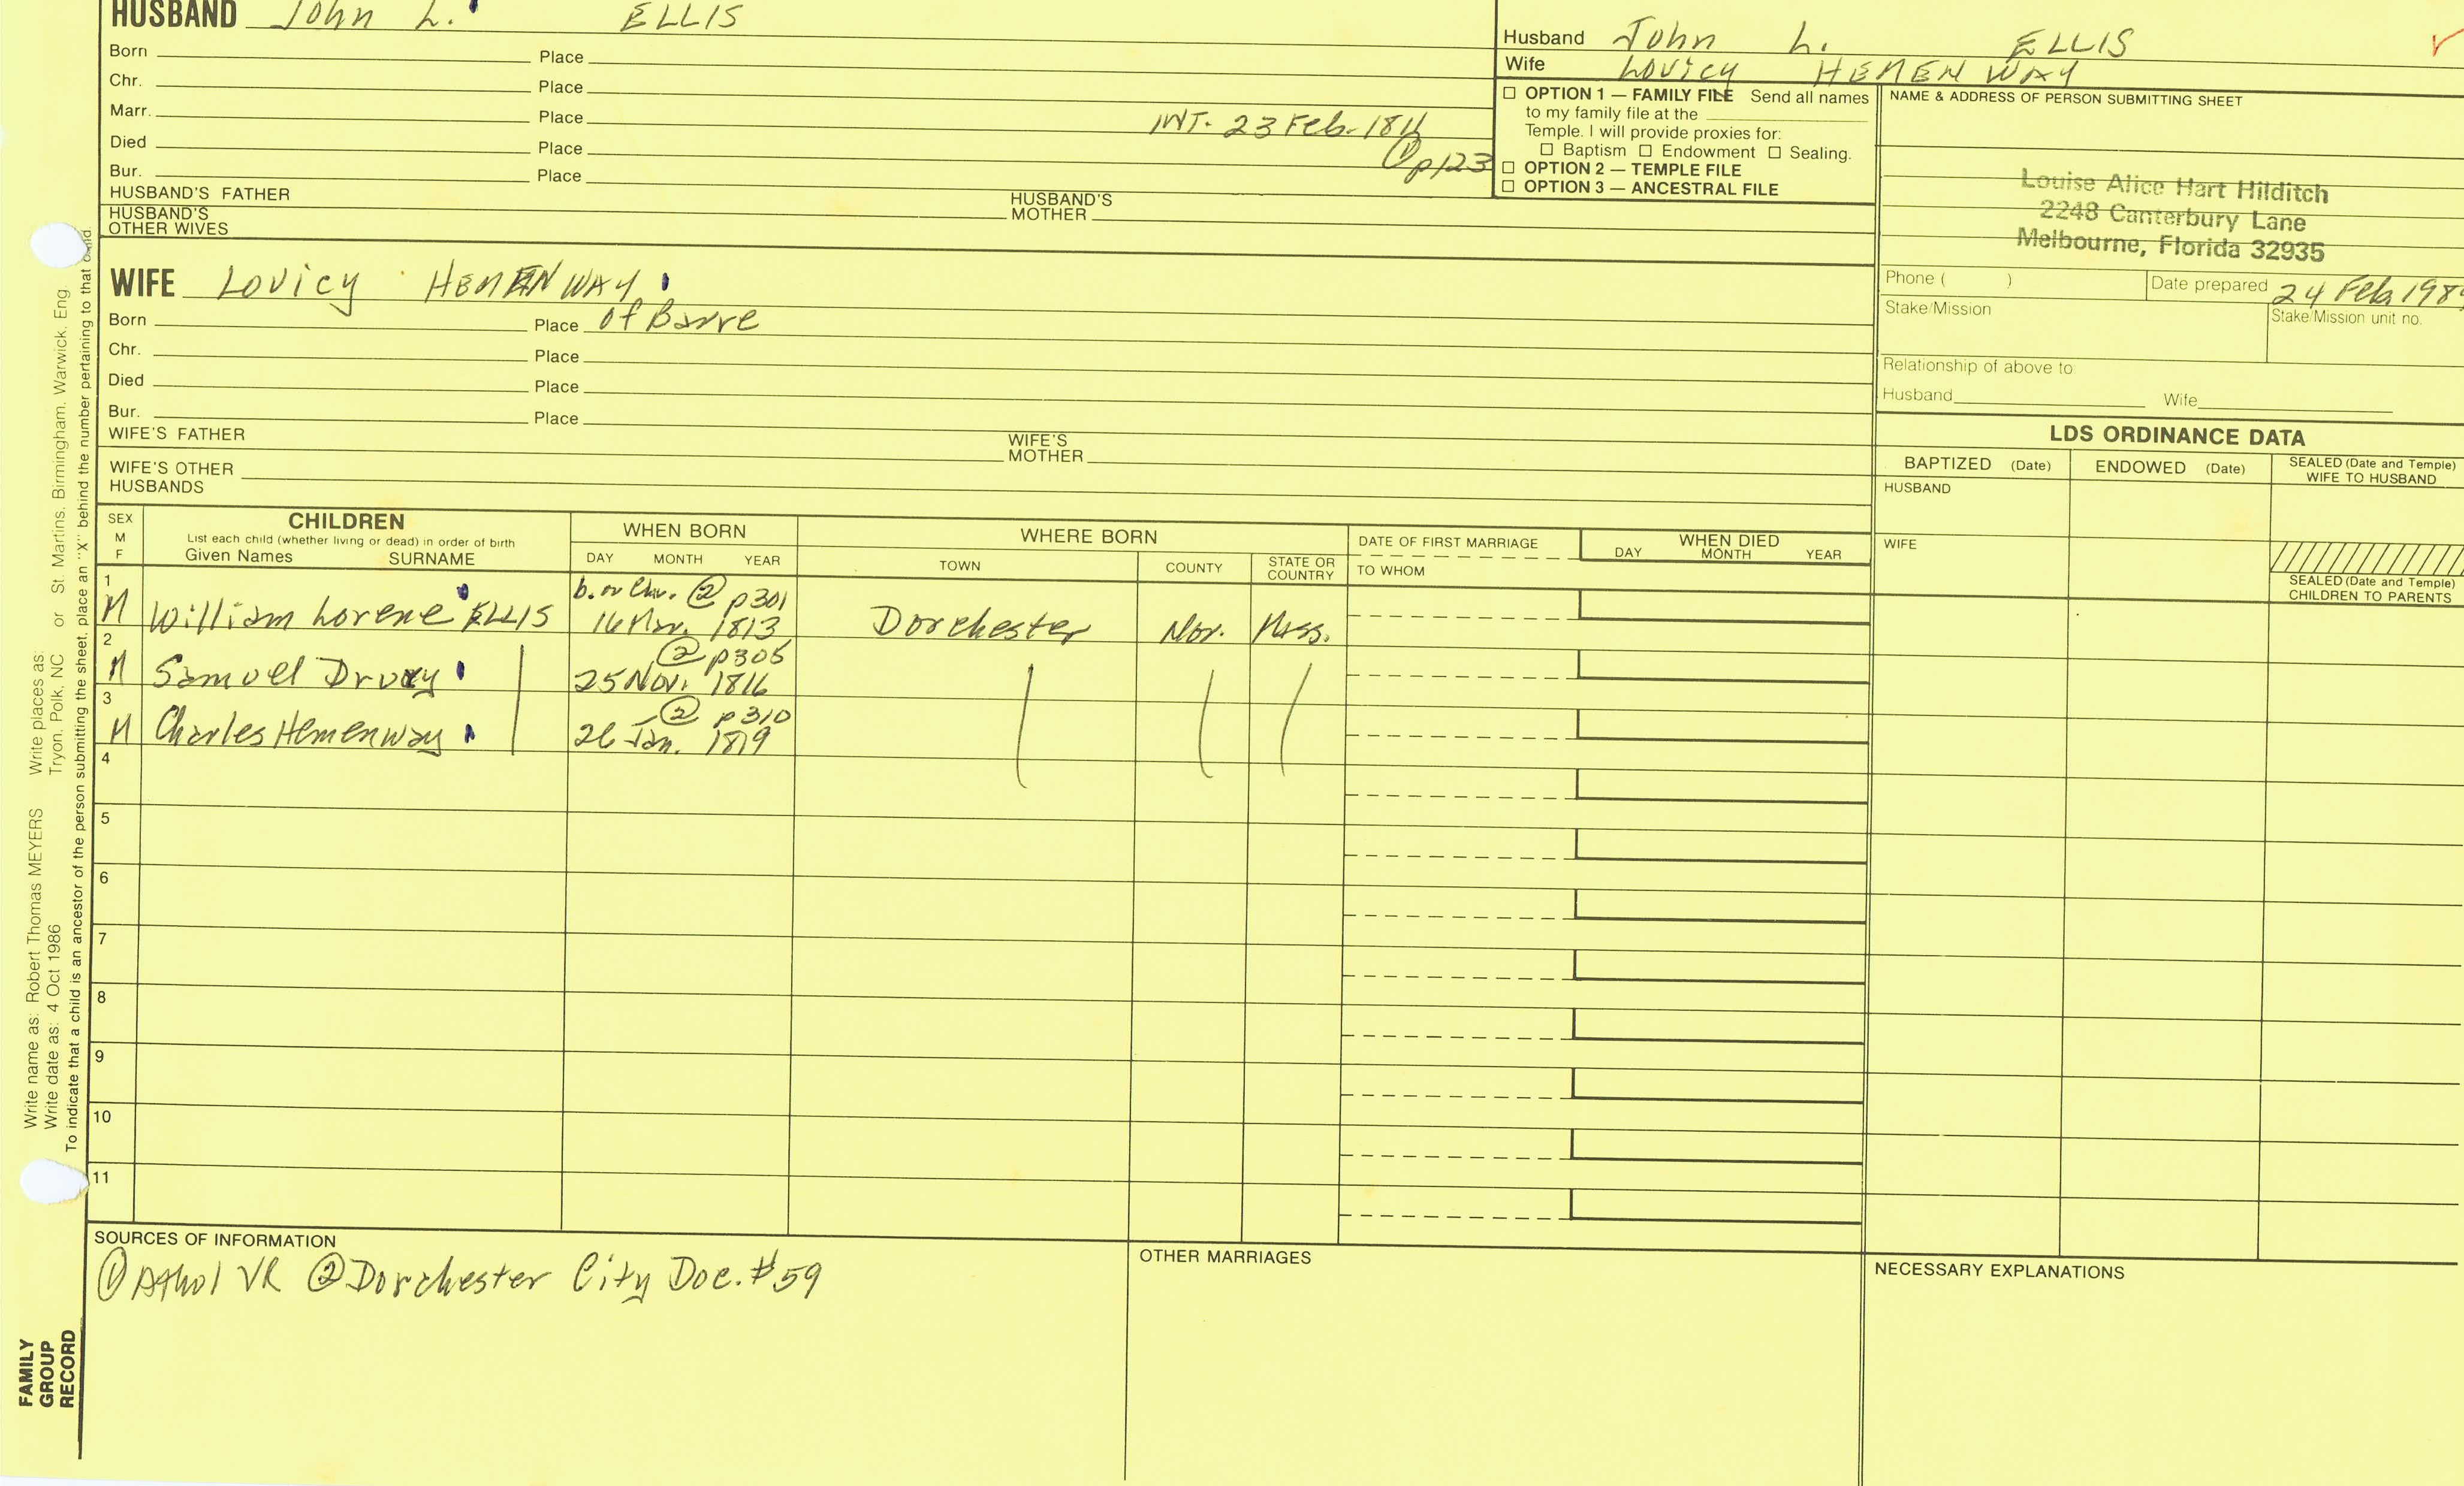 HUSBAND John L. ELLIS
Born Place
Chr. Place
Marr. Place INT. 23 Feb. 1811
① p123
Died Place
Bur. Place
HUSBAND'S FATHER HUSBAND'S MOTHER
HUSBAND'S OTHER WIVES
Husband John L. ELLIS
Wife Lovicy HEMENWAY
☐ OPTION 1 — FAMILY FILE Send all names
to my family file at the
Temple. I will provide proxies for:
☐ Baptism ☐ Endowment ☐ Sealing.
☐ OPTION 2 — TEMPLE FILE
☐ OPTION 3 — ANCESTRAL FILE
NAME & ADDRESS OF PERSON SUBMITTING SHEET
Louise Alice Hart Hilditch
2248 Canterbury Lane
Melbourne, Florida 32935
Phone ( ) Date prepared 24 Feb.
Stake/Mission Stake/Mission unit no.
Relationship of above to:
Husband Wife
WIFE Lovicy HEMENWAY
Born Place of Barre
Chr. Place
Died Place
Bur. Place
WIFE'S FATHER WIFE'S MOTHER
WIFE'S OTHER HUSBANDS
LDS ORDINANCE DATA
BAPTIZED (Date) ENDOWED (Date) SEALED (Date and Temple) WIFE TO HUSBAND
HUSBAND
WIFE
SEALED (Date and Temple) CHILDREN TO PARENTS
SEX M F
CHILDREN
List each child (whether living or dead) in order of birth
Given Names SURNAME
WHEN BORN
DAY MONTH YEAR
WHERE BORN
TOWN COUNTY STATE OR COUNTRY
DATE OF FIRST MARRIAGE
TO WHOM
WHEN DIED
DAY MONTH YEAR
b. or Chr. ② p301
1 M William Lorene ELLIS 1813 Dorchester Nor. Mass.
② p305
2 M Samuel Drury 25 Nov. 1816
② p310
3 M Charles Hemenway 26 Jan. 1819
4
5
6
7
8
9
10
11
SOURCES OF INFORMATION
① Athol VR ② Dorchester City Doc. #59
OTHER MARRIAGES
NECESSARY EXPLANATIONS
Write name as: Robert Thomas MEYERS Write places as:
Write date as: 4 Oct 1986 Tryon, Polk, NC or St. Martins, Birmingham, Warwick, Eng.
To indicate that a child is an ancestor of the person submitting the sheet, place an "X" behind the number pertaining to that child.
FAMILY
GROUP
RECORD